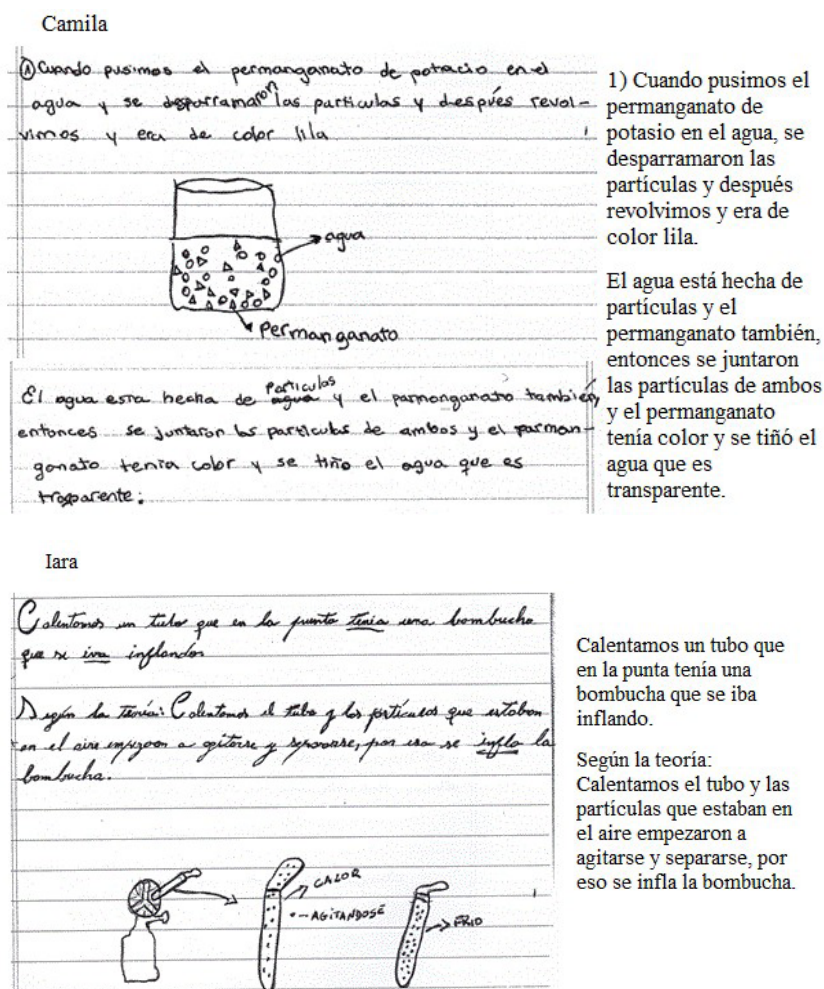 Camila
① Cuando pusimos el permanganato de potacio en el
agua y se desparramaron las particulas y después revol-
vimos y era de color lila
agua
Permanganato
El agua esta hecha de particulas y el parmanganato también,
entonces se juntaron las particulas de ambos y el parman-
ganato tenia color y se tiño el agua que es
trasparente.
1) Cuando pusimos el
permanganato de
potasio en el agua, se
desparramaron las
partículas y después
revolvimos y era de
color lila.
El agua está hecha de
partículas y el
permanganato también,
entonces se juntaron
las partículas de ambos
y el permanganato
tenía color y se tiñó el
agua que es
transparente.
Iara
Calentamos un tubo que en la punta tenia una bombucha
que se iva inflando
Según la teoría: Calentamos el tubo y las particulas que estaban
en el aire empezaron a agitarse y separarse, por eso se infla la
bombucha.
CALOR
AGITANDOSÉ
FRIO
Calentamos un tubo que
en la punta tenía una
bombucha que se iba
inflando.
Según la teoría:
Calentamos el tubo y las
partículas que estaban en
el aire empezaron a
agitarse y separarse, por
eso se infla la bombucha.